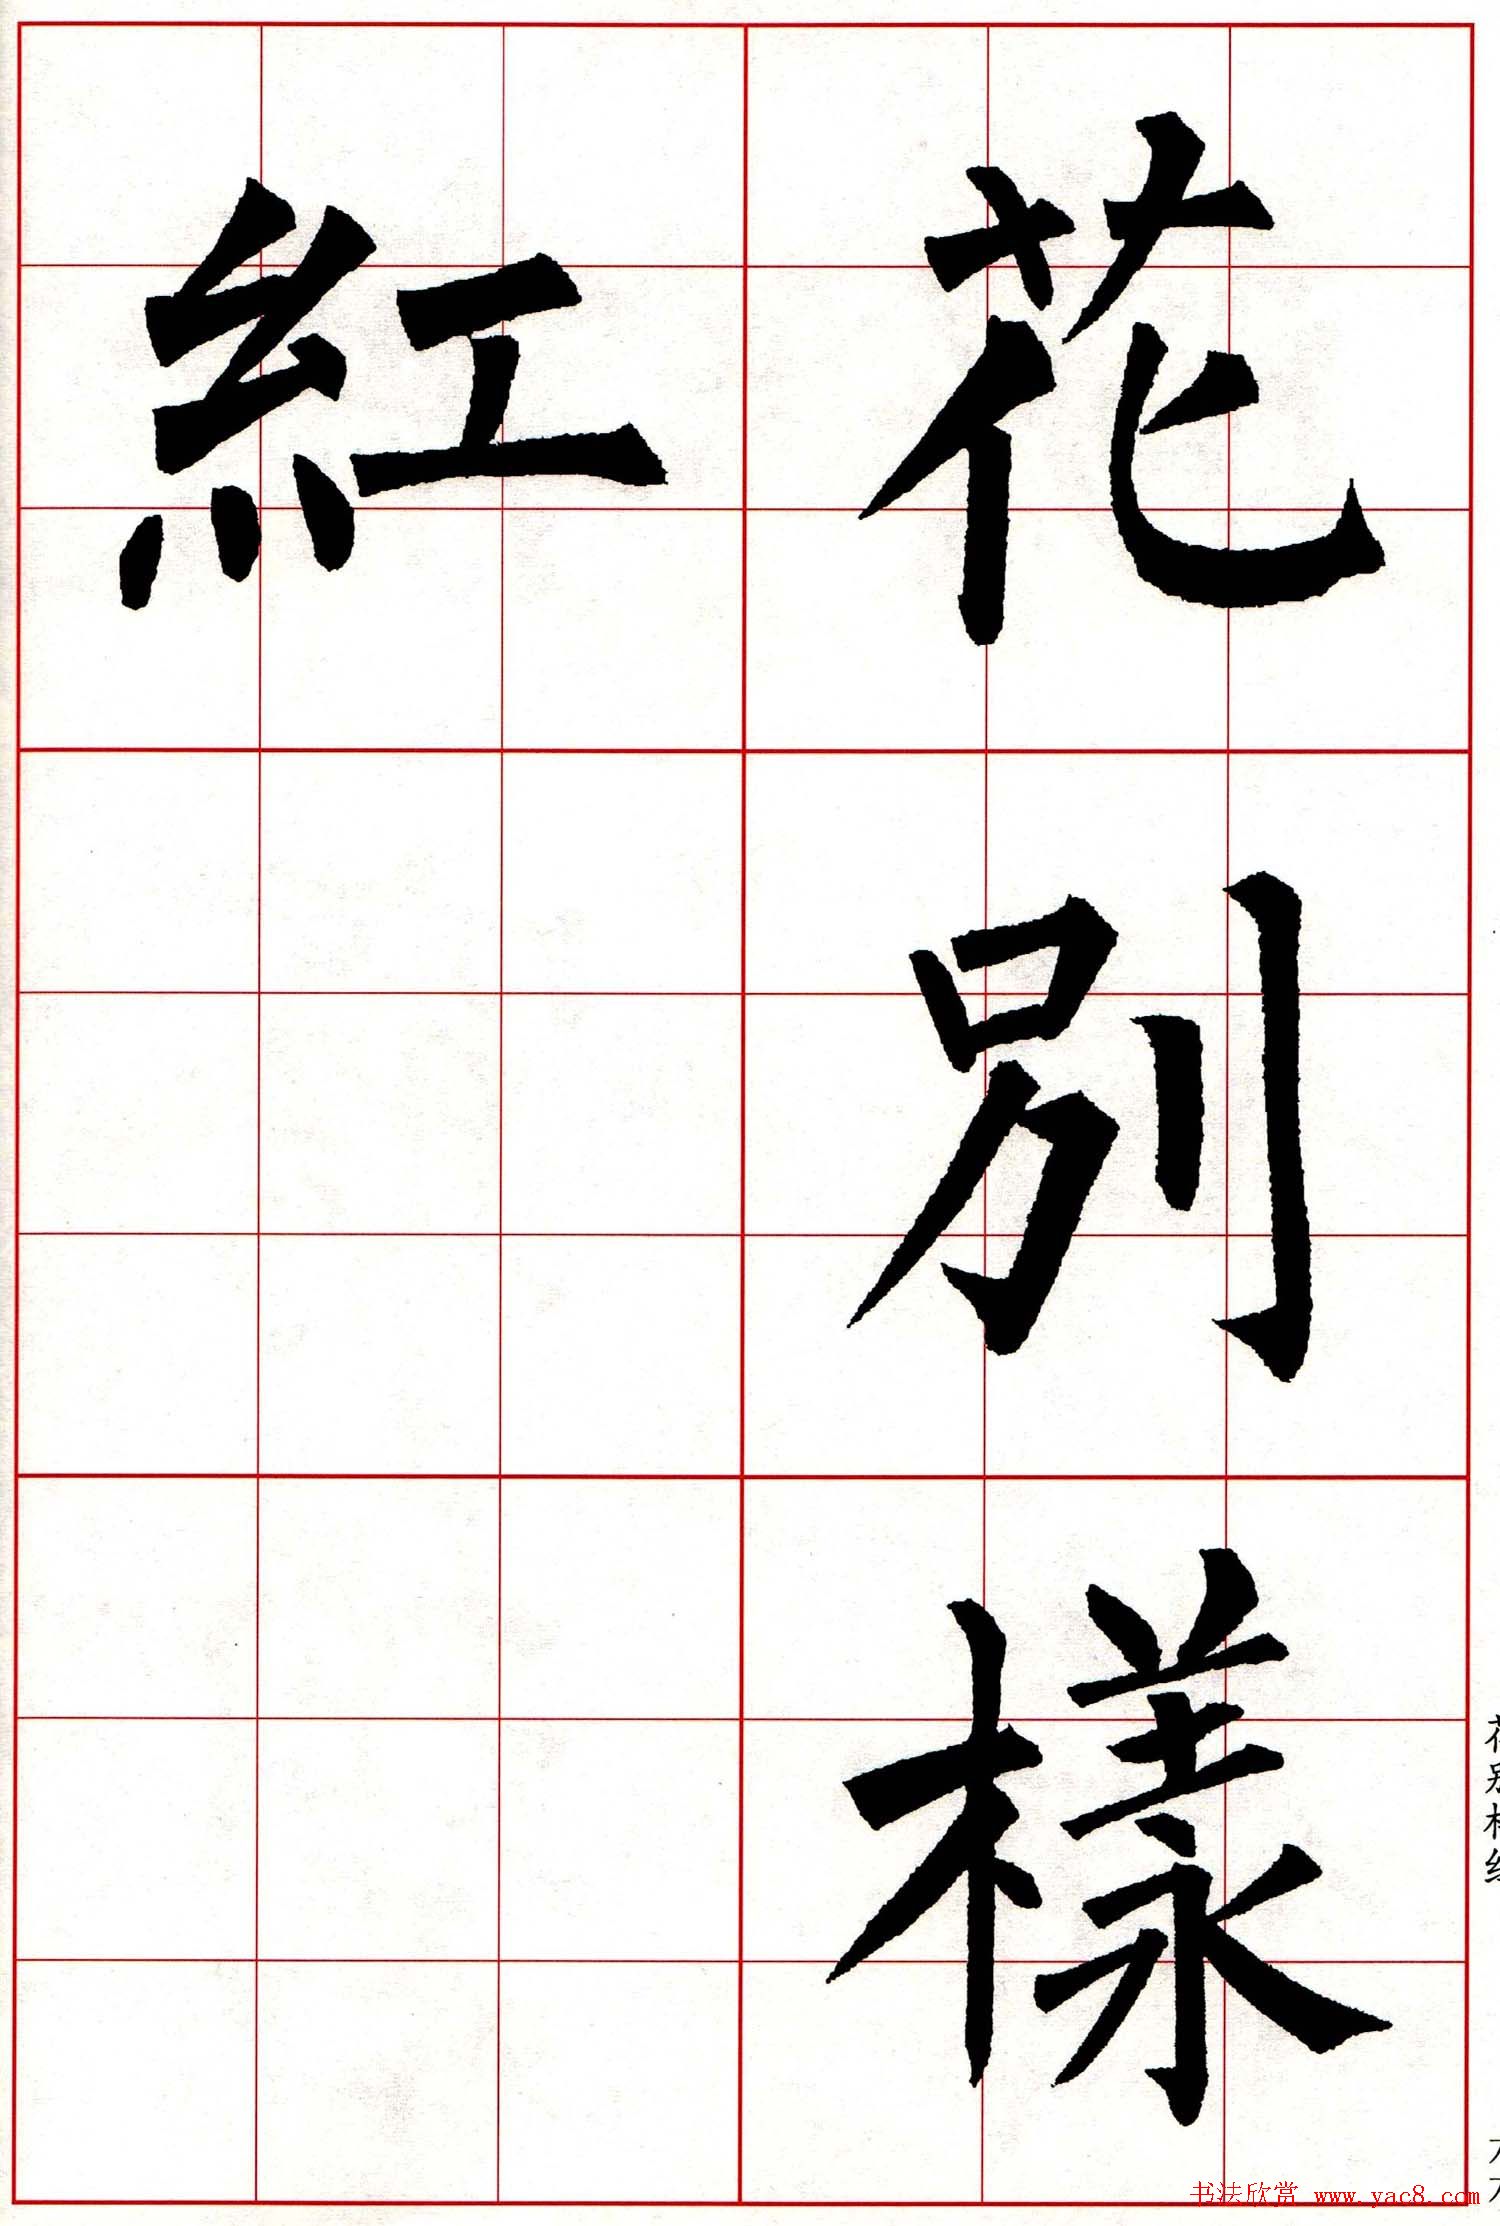 花別樣
紅
书法欣赏 www.yac8.com